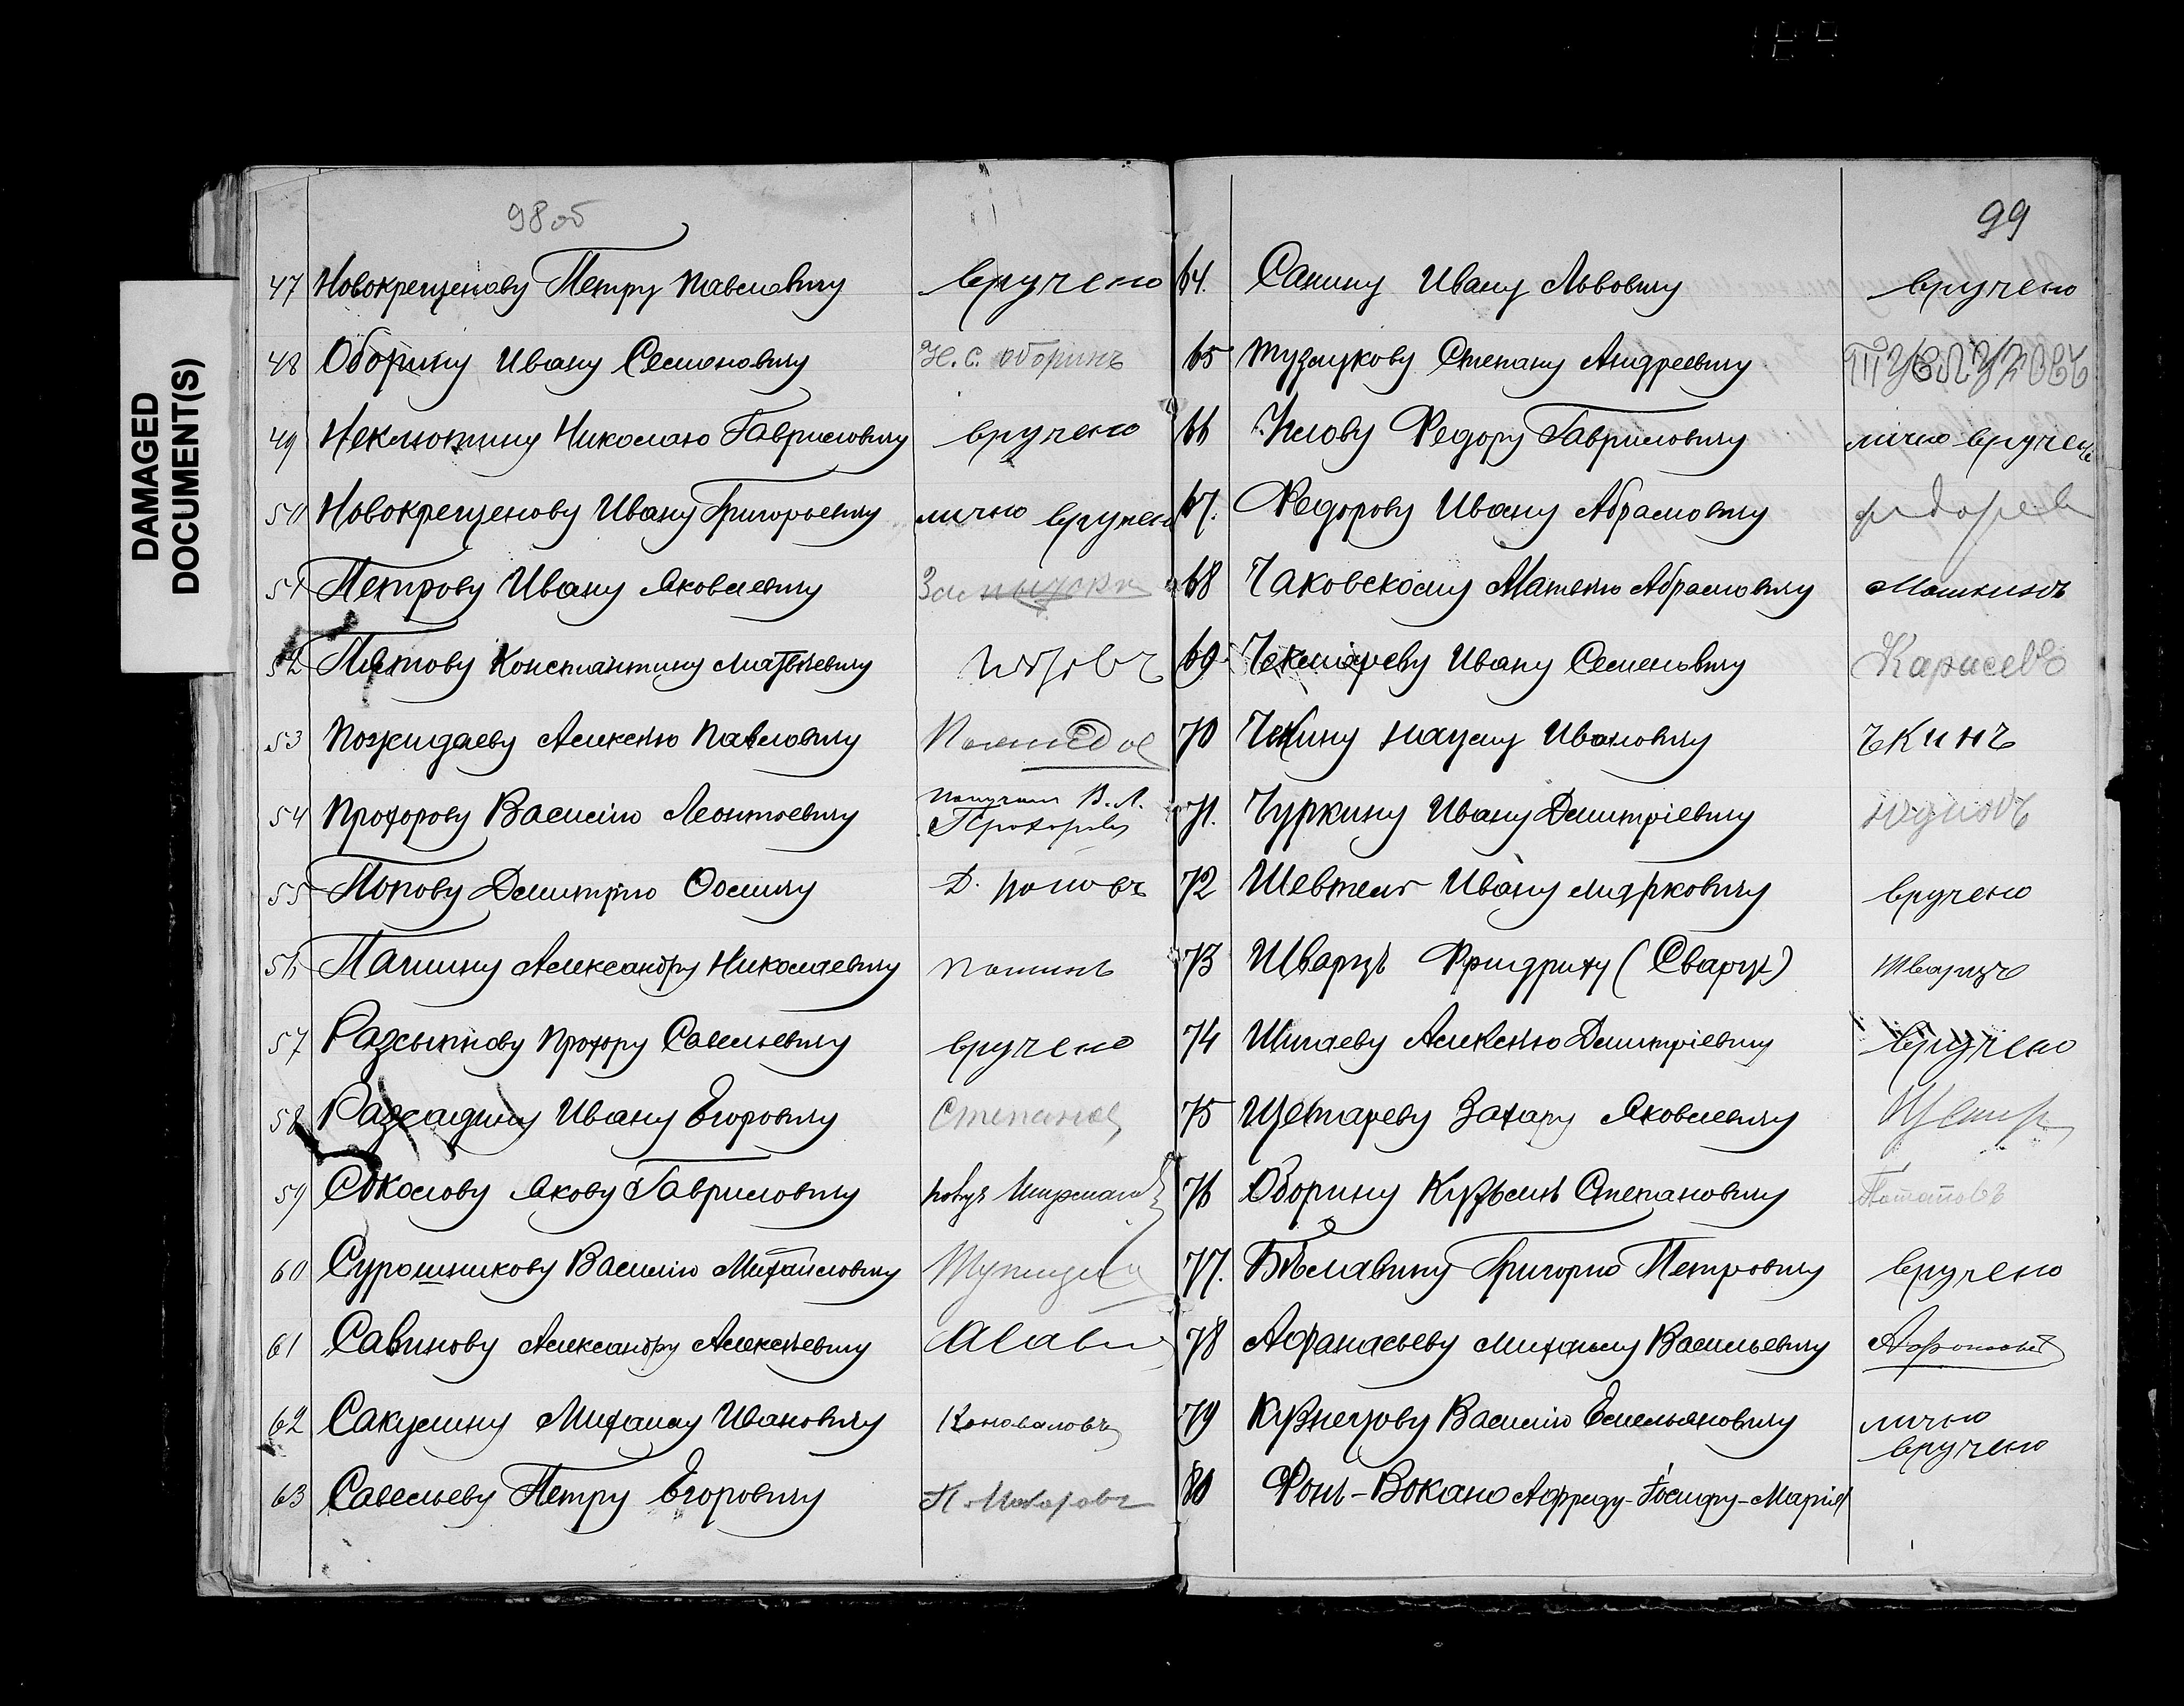 DAMAGED
DOCUMENT(S)
98 об
47 Новокрещенову Петру Павловичу вручено
48 Оборину Ивану Семеновичу И. С. Оборинъ
49 Неклютину Николаю Гавриловичу вручено
50 Новокрещенову Ивану Григорьевичу лично вручено
51 Петрову Ивану Яковлевичу
52 Пятову Константину Матвѣевичу
53 Пожидаеву Алексѣю Павловичу
54 Прохорову Василію Леонтьевичу получил В. Л.
Прохоровъ
55 Попову Дмитрію Осипу Д. Поповъ
56 Пашину Александру Николаевичу Пашинъ
57 Разсыпнову Прохору Савельевичу вручено
58 Разсадину Ивану Егоровичу Степанов
59 Соколову Якову Гавриловичу
60 Сурошникову Василію Михайловичу
61 Савинову Александру Алексѣевичу
62 Сакулину Михаилу Ивановичу Коноваловъ
63 Савельеву Петру Егоровичу П. Макаровъ
99
64. Санину Ивану Львовичу вручено
65 Тузлукову Степану Андреевичу Тузлуковъ
66 Углову Федору Гавриловичу лично вручено
67. Федорову Ивану Абрамовичу Федоров
68 Чаковскому Матвѣю Абрамовичу Машкинъ
69 Чекмареву Ивану Семеновичу Карасевъ
70 Чекину Науму Ивановичу Чкинъ
71. Чуркину Ивану Дмитріевичу
72 Шевтель Ивану Марковичу вручено
73 Шварцъ Фридриху (Сварцъ) Шварцъ
74 Шишаеву Алексѣю Дмитріевичу вручено
75 Щетареву Захару Яковлевичу
76 Оборину Кузьмѣ Степановичу Потаповъ
77. Бѣлавину Григорію Петровичу вручено
78 Афанасьеву Михаилу Васильевичу
79 Кузнецову Василію Емельяновичу лично
вручено
80 Фонъ-Вокано Алфреду-Іосифу-Марія